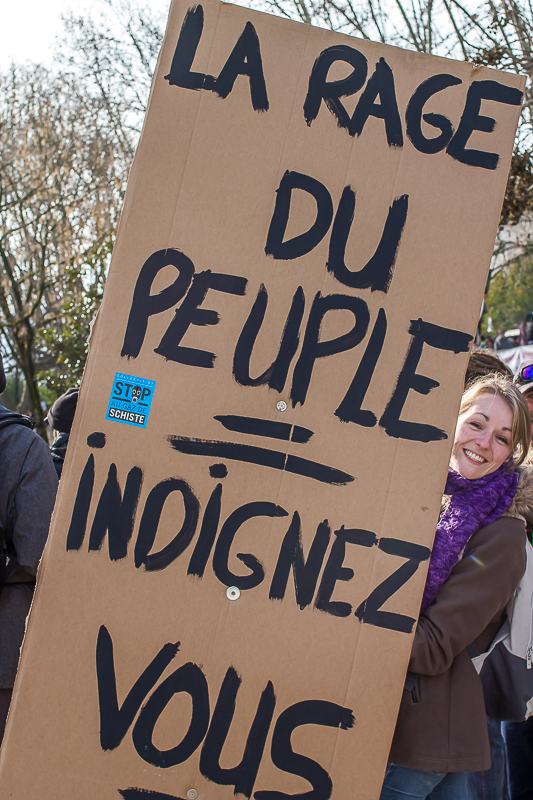 LA RAGE
DU
PEUPLE
=
iNDiGNEZ
VOUS
STOP
AU GAZ DE
SCHISTE